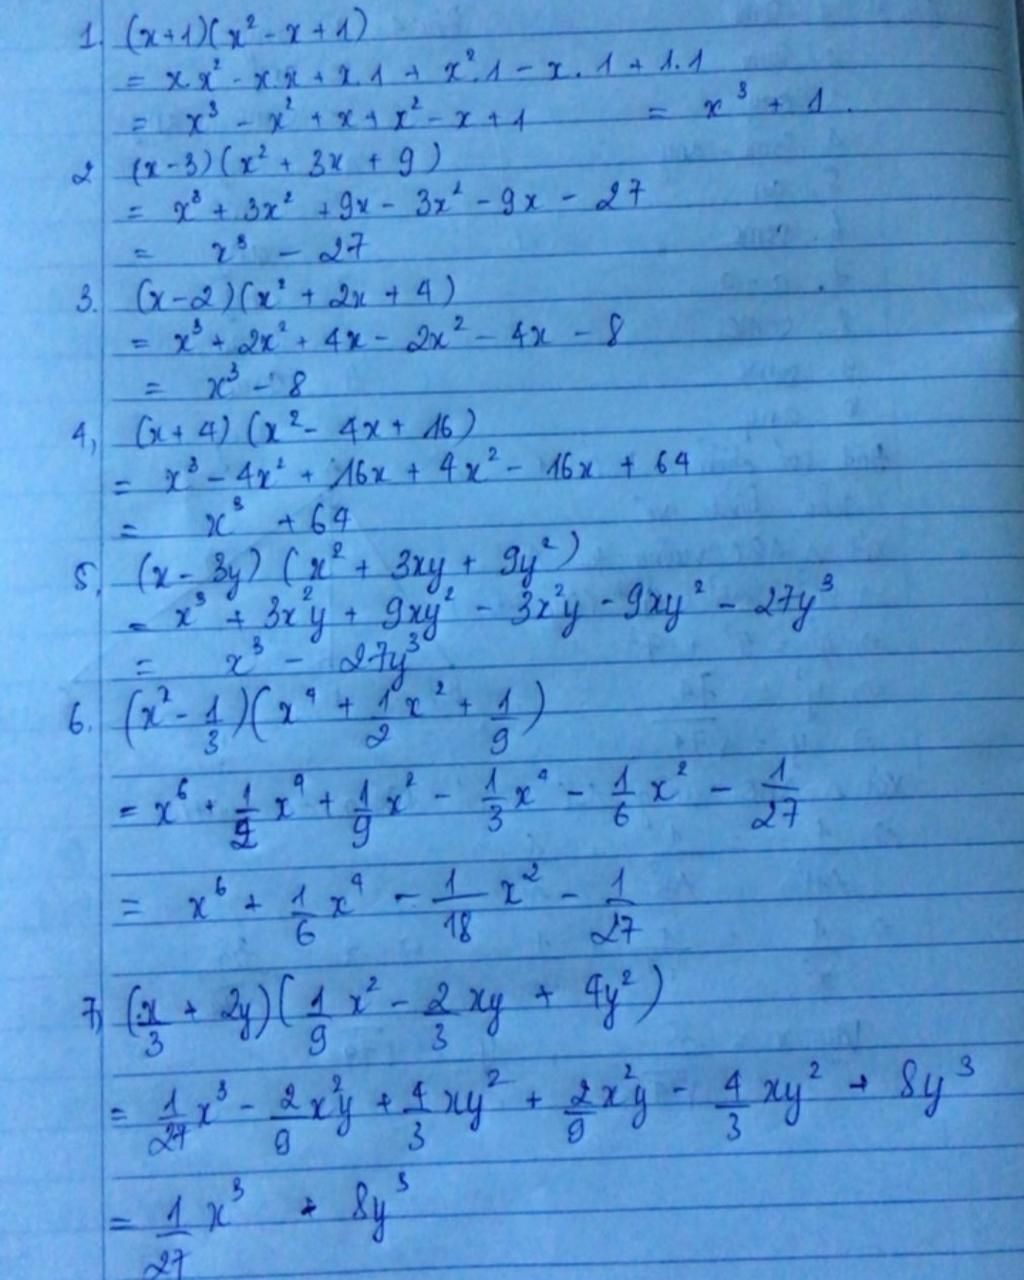 1. (x+1)(x² - x + 1)
= x.x² - x.x + x.1 + x².1 - x.1 + 1.1
= x³ - x² + x + x² - x + 1 = x³ + 1.
2 (x-3)(x² + 3x + 9)
= x³ + 3x² + 9x - 3x² - 9x - 27
= x³ - 27
3. (x-2)(x² + 2x + 4)
= x³ + 2x² + 4x - 2x² - 4x - 8
= x³ - 8
4, (x+4)(x² - 4x + 16)
= x³ - 4x² + 16x + 4x² - 16x + 64
= x³ + 64
5, (x - 3y)(x² + 3xy + 9y²)
= x³ + 3x²y + 9xy² - 3x²y - 9xy² - 27y³
= x³ - 27y³
6. (x² - 1/3)(x⁴ + 1/2 x² + 1/9)
= x⁶ + 1/2 x⁴ + 1/9 x² - 1/3 x⁴ - 1/6 x² - 1/27
= x⁶ + 1/6 x⁴ - 1/18 x² - 1/27
7, (x/3 + 2y)(1/9 x² - 2/3 xy + 4y²)
= 1/27 x³ - 2/9 x²y + 4/3 xy² + 2/9 x²y - 4/3 xy² + 8y³
= 1/27 x³ + 8y³